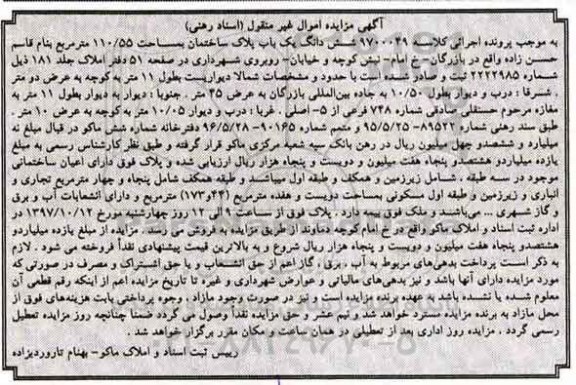 آگهی مزایده اموال غیر منقول (اسناد رهنی)
به موجب پرونده اجرائی کلاسه ۹۷۰۰۰۴۹ شش دانگ یک باب پلاک ساختمان بمساحت ۱۱۰/۵۵ مترمربع بنام قاسم
حسن زاده واقع در بازرگان- خ امام- نبش کوچه و خیابان- روبروی شهرداری در صفحه ۵۱ دفتر املاک جلد ۱۸۱ ذیل
شماره ۲۲۲۲۹۸۵ ثبت و صادر شده است با حدود و مشخصات شمالا دیواریست بطول ۱۱ متر به کوچه به عرض دو متر
. شرقا : درب و دیوار بطول ۱۰/۵۰ به جاده بین‌المللی بازرگان به عرض ۴۵ متر . جنوبا : دیوار به دیوار بطول ۱۱ متر به
مغازه مرحوم حسنقلی صادقی شماره ۷۴۸ فرعی از ۵- اصلی . غربا : درب و دیوار ۱۰/۰۵ متر به کوچه به عرض ۱۰ متر .
طبق سند رهنی شماره ۸۹۵۲۲- ۹۵/۵/۲۵ و متمم شماره ۹۰۱۶۵- ۹۶/۵/۲۸ دفترخانه شماره شش ماکو در قبال مبلغ نه
میلیارد و ششصدو چهل میلیون ریال در رهن بانک سپه شعبه مرکزی ماکو قرار گرفته و طبق نظر کارشناس رسمی به مبلغ
یازده میلیاردو هشتصدو پنجاه هفت میلیون و دویست و پنجاه هزار ریال ارزیابی شده و پلاک فوق دارای اعیان ساختمانی
موجود در سه طبقه . شامل زیرزمین و همکف و طبقه اول میباشد و طبقه همکف شامل پنجاه و چهار مترمربع تجاری و
انباری و زیرزمین و طبقه اول مسکونی بمساحت دویست و هفده مترمربع (۴۴و۱۷۳) مترمربع و دارای انشعابات آب و برق
و گاز شهری ... می‌باشند و ملک فوق بیمه دارد . پلاک فوق از ساعت ۹ الی ۱۲ روز چهارشنبه مورخ ۱۳۹۷/۱۰/۱۲ در
اداره ثبت اسناد و املاک ماکو واقع در خ امام کوچه دماوند از طریق مزایده به فروش می رسد . مزایده از مبلغ یازده میلیاردو
هشتصدو پنجاه هفت میلیون و دویست و پنجاه هزار ریال شروع و به بالاترین قیمت پیشنهادی نقداً فروخته می شود . لازم
به ذکر است پرداخت بدهی‌های مربوط به آب . برق . گاز اعم از حق انشعاب و یا حق اشتراک و مصرف در صورتی که
مورد مزایده دارای آنها باشد و نیز بدهی‌های مالیاتی و عوارض شهرداری و غیره تا تاریخ مزایده اعم از اینکه رقم قطعی آن
معلوم شده یا نشده باشد به عهده برنده مزایده است و نیز در صورت وجود مازاد . وجوه پرداختی بابت هزینه‌های فوق از
محل مازاد به برنده مزایده مسترد خواهد شد و نیم عشر و حق مزایده نقداً وصول می گردد ضمنا چنانچه روز مزایده تعطیل
رسمی گردد . مزایده روز اداری بعد از تعطیلی در همان ساعت و مکان مقرر برگزار خواهد شد .
رییس ثبت اسناد و املاک ماکو- بهنام تاروردیزاده